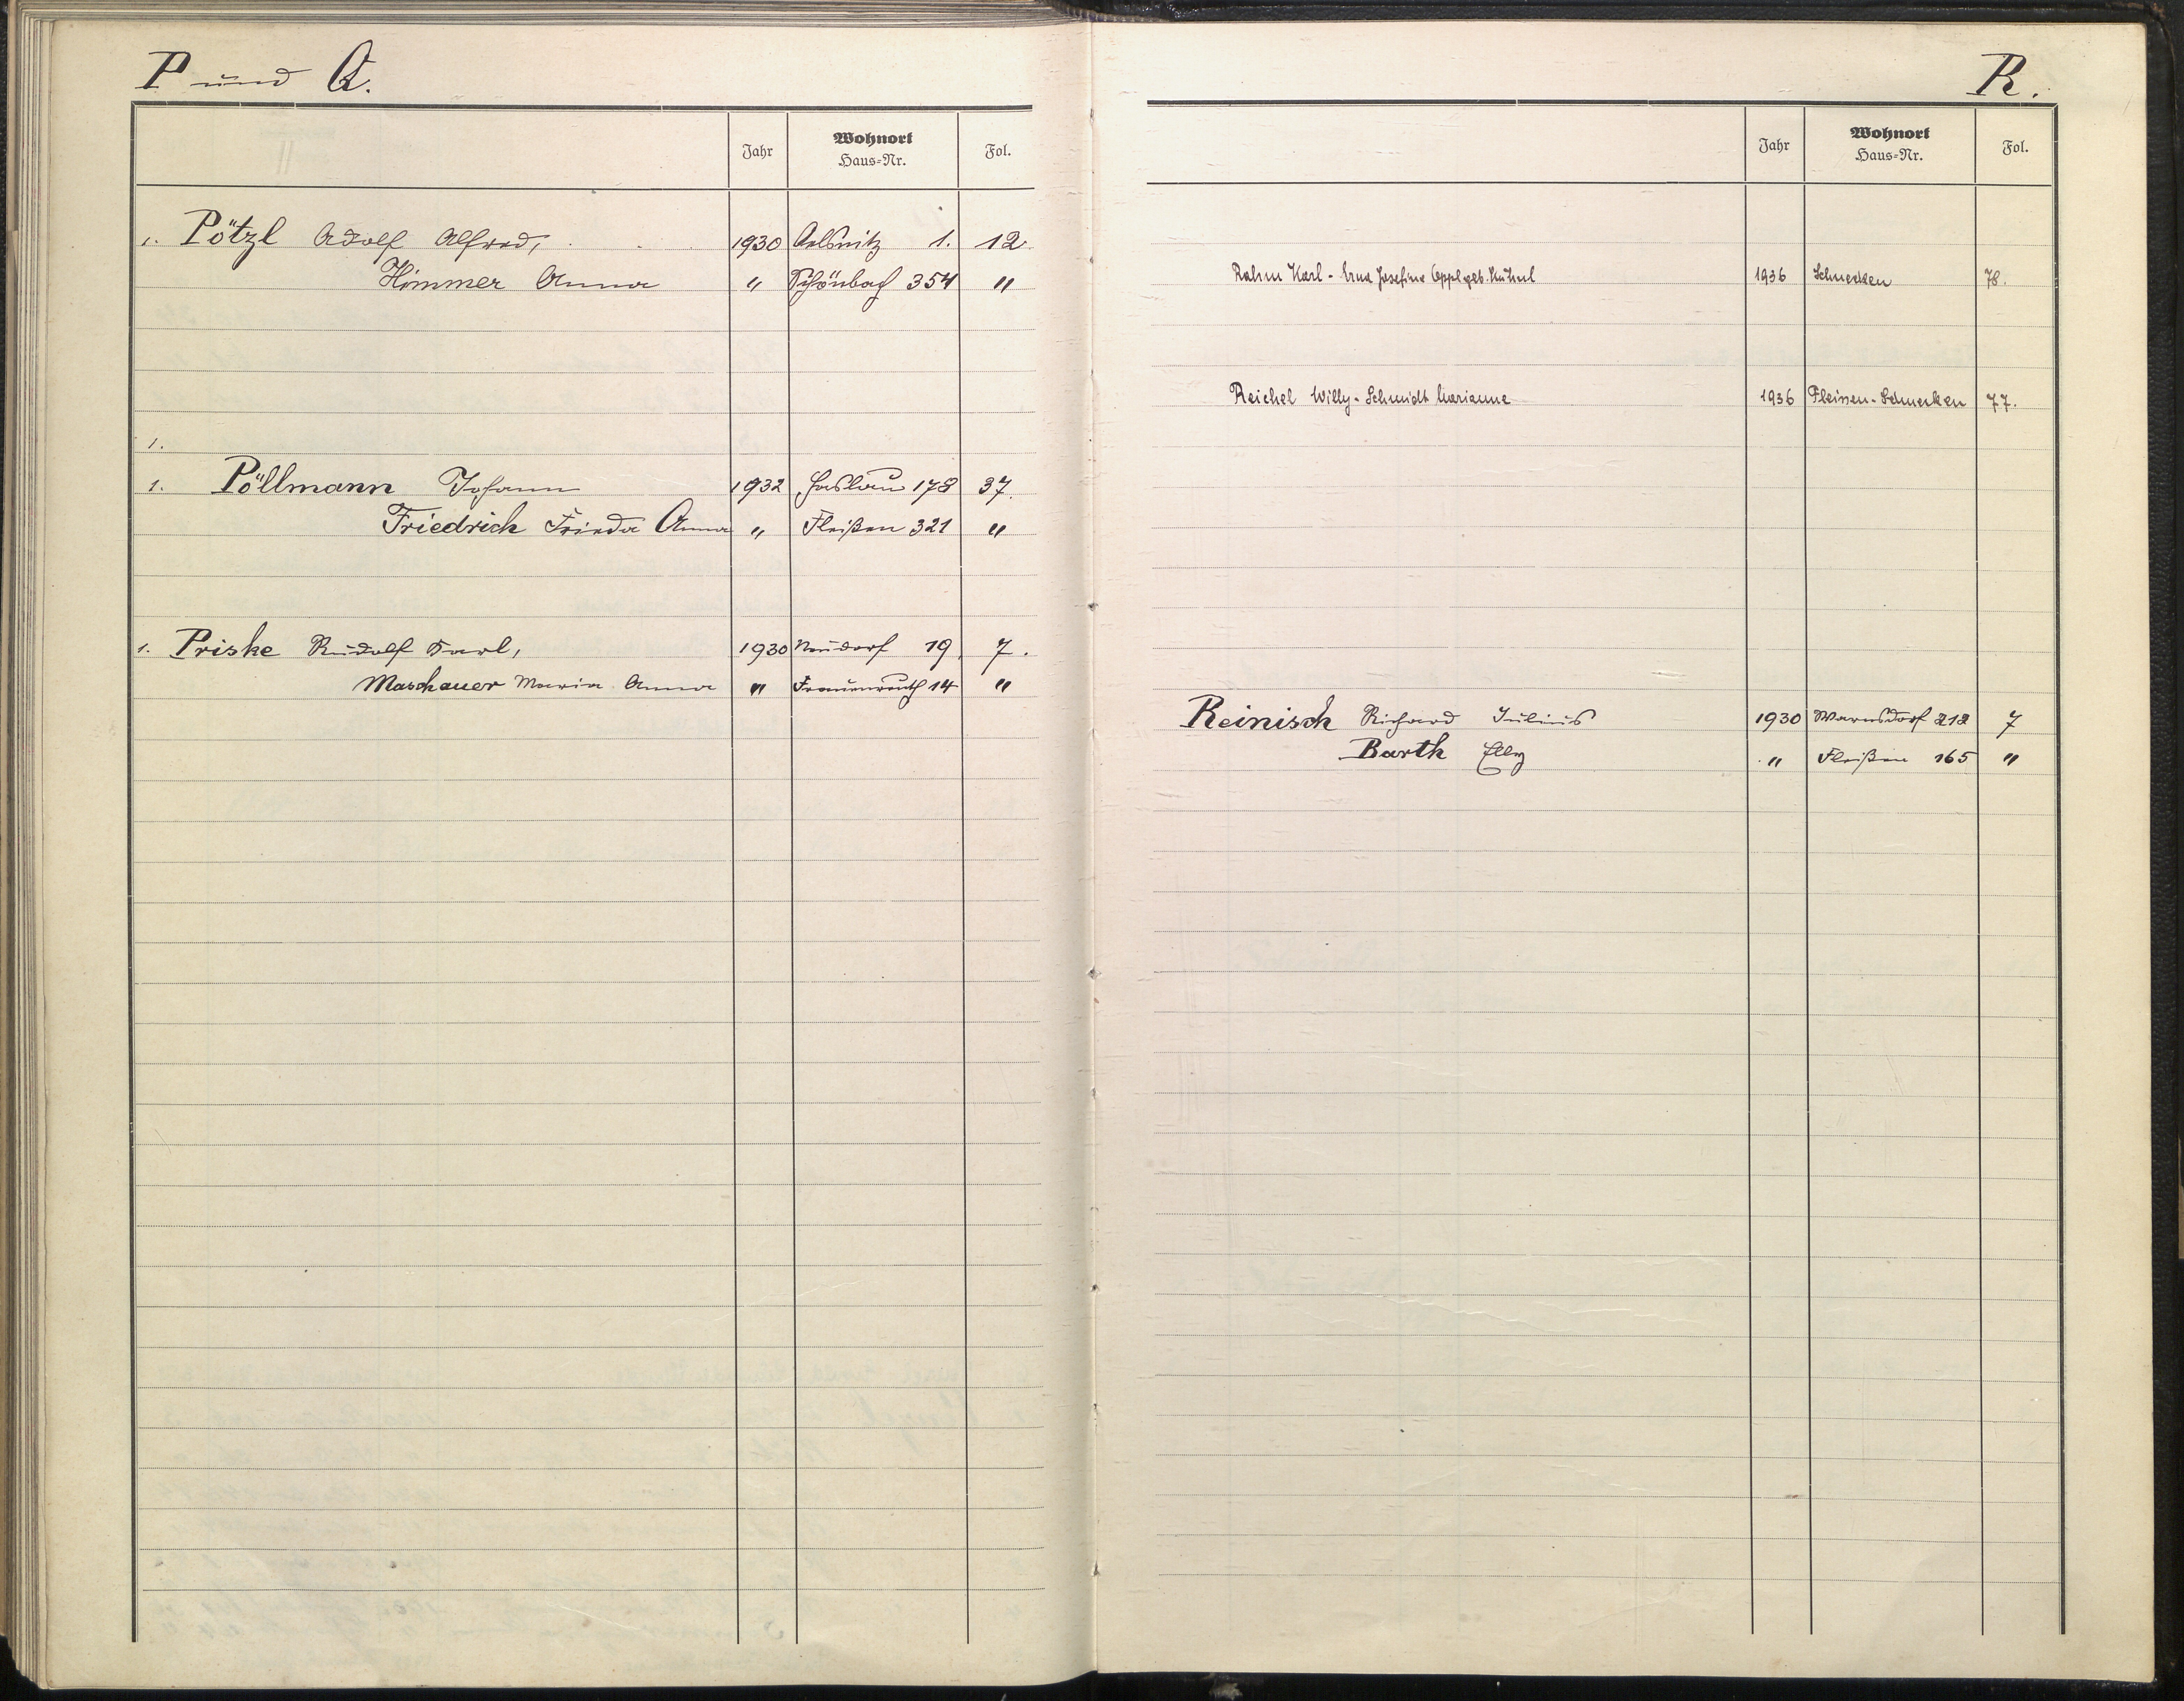 P und Q.
Jahr Wohnort Haus=Nr. Fol.
1. Pötzl Adolf Alfred, 1930 Oelsnitz 1. 12.
Himmer Anna " Schönbach 354 "
1.
1. Pöllmann Johann 1932 Haslau 178 37.
Friedrich Frieda Anna " Fleißen 321 "
1. Priske Rudolf Karl, 1930 Neudorf 19, 7.
Maschauer Maria Anna " Frauenreuth 14 "
R.
Jahr Wohnort Haus=Nr. Fol.
Rahm Karl - Erna Josefine Oppl geb. 1936 Schnecken 78.
Reichel Willy - Schmidt Marianne 1936 Fleissen - Schnecken 77.
Reinisch Richard Julius 1930 Warnsdorf 212 7
Barth Elly " Fleißen 165 "